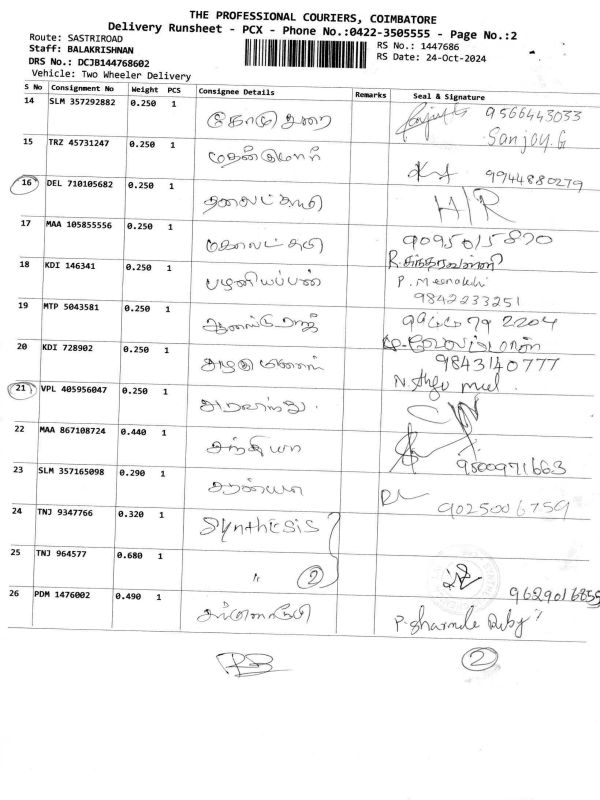 THE PROFESSIONAL COURIERS, COIMBATORE
Delivery Runsheet - PCX - Phone No.:0422-3505555 - Page No.:2
Route: SASTRIROAD
Staff: BALAKRISHNAN
RS No.: 1447686
DRS No.: DCJB144768602
RS Date: 24-Oct-2024
Vehicle: Two Wheeler Delivery
S No Consignment No Weight PCS Consignee Details Remarks Seal & Signature
14 SLM 357292882 0.250 1 கோடு துரை 9566443033
Sanjay.G
15 TRZ 45731247 0.250 1 மதன்குமார் 9944880279
16 DEL 710105682 0.250 1 H/R
17 MAA 105855556 0.250 1 மகாலட்சுமி 9095015870
18 KDI 146341 0.250 1 பழனியப்பன் P. Meenakshi
9842233251
19 MTP 5043581 0.250 1 ஆனஸ்டுராஜ்
20 KDI 728902 0.250 1 9843140777
21 VPL 405956047 0.250 1 அரவிந்து.
22 MAA 867108724 0.440 1 சந்தியா 9500971663
23 SLM 357165098 0.290 1 சரண்யா 9025006759
24 TNJ 9347766 0.320 1 Synthesis
25 TNJ 964577 0.680 1 " 2 9629016859
26 PDM 1476002 0.490 1 P. Sharmile Ruby
2